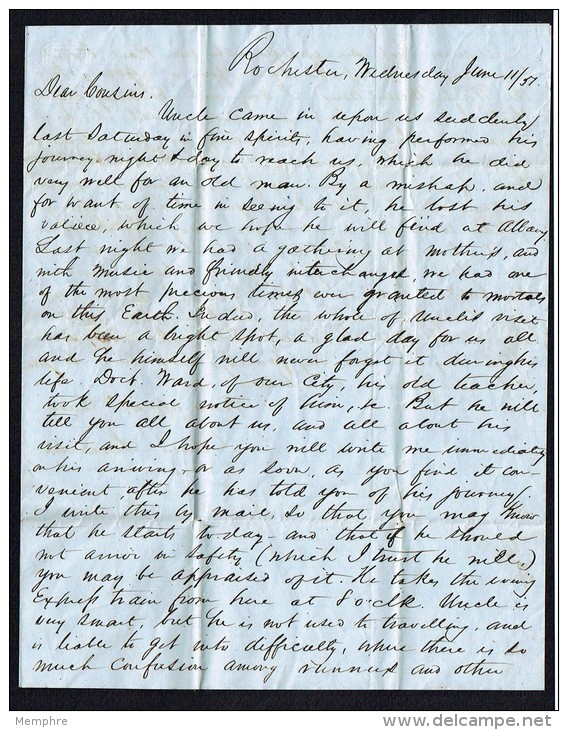 Rochester, Wednesday June 11/51.
Dear Cousins.
Uncle came in upon us suddenly
last Saturday in fine spirits, having performed his
journey night & day to reach us, which he did
very well for an old man. By a mishap, and
for want of time in seeing to it, he lost his
valiece, which we hope he will find at Albany.
Last night we had a gathering at mother's, and
with music and friendly interchanged, we had one
of the most precious times ever granted to mortals
on this Earth. Indeed, the whole of Uncle's visit
has been a bright spot, a glad day for us all
and he himself will never forget it during his
life. Doct. Ward, of our City, his old teacher,
took special notice of him, &c. But he will
tell you all about us, and all about his
visit, and I hope you will write me immediately
on his arriving, or as soon, as you find it con-
venient, after he has told you of his journey.
I write this by mail, so that you may know
that he starts to-day - and that if he should
not arrive in safety (which I trust he will,)
you may be appraised of it. He takes the evening
Express train from here at 8 o'clk. Uncle is
very smart, but he is not used to travelling, and
is liable to get into difficulty, where there is so
much confusion among runners and other
Memphre
http://www.delcampe.net